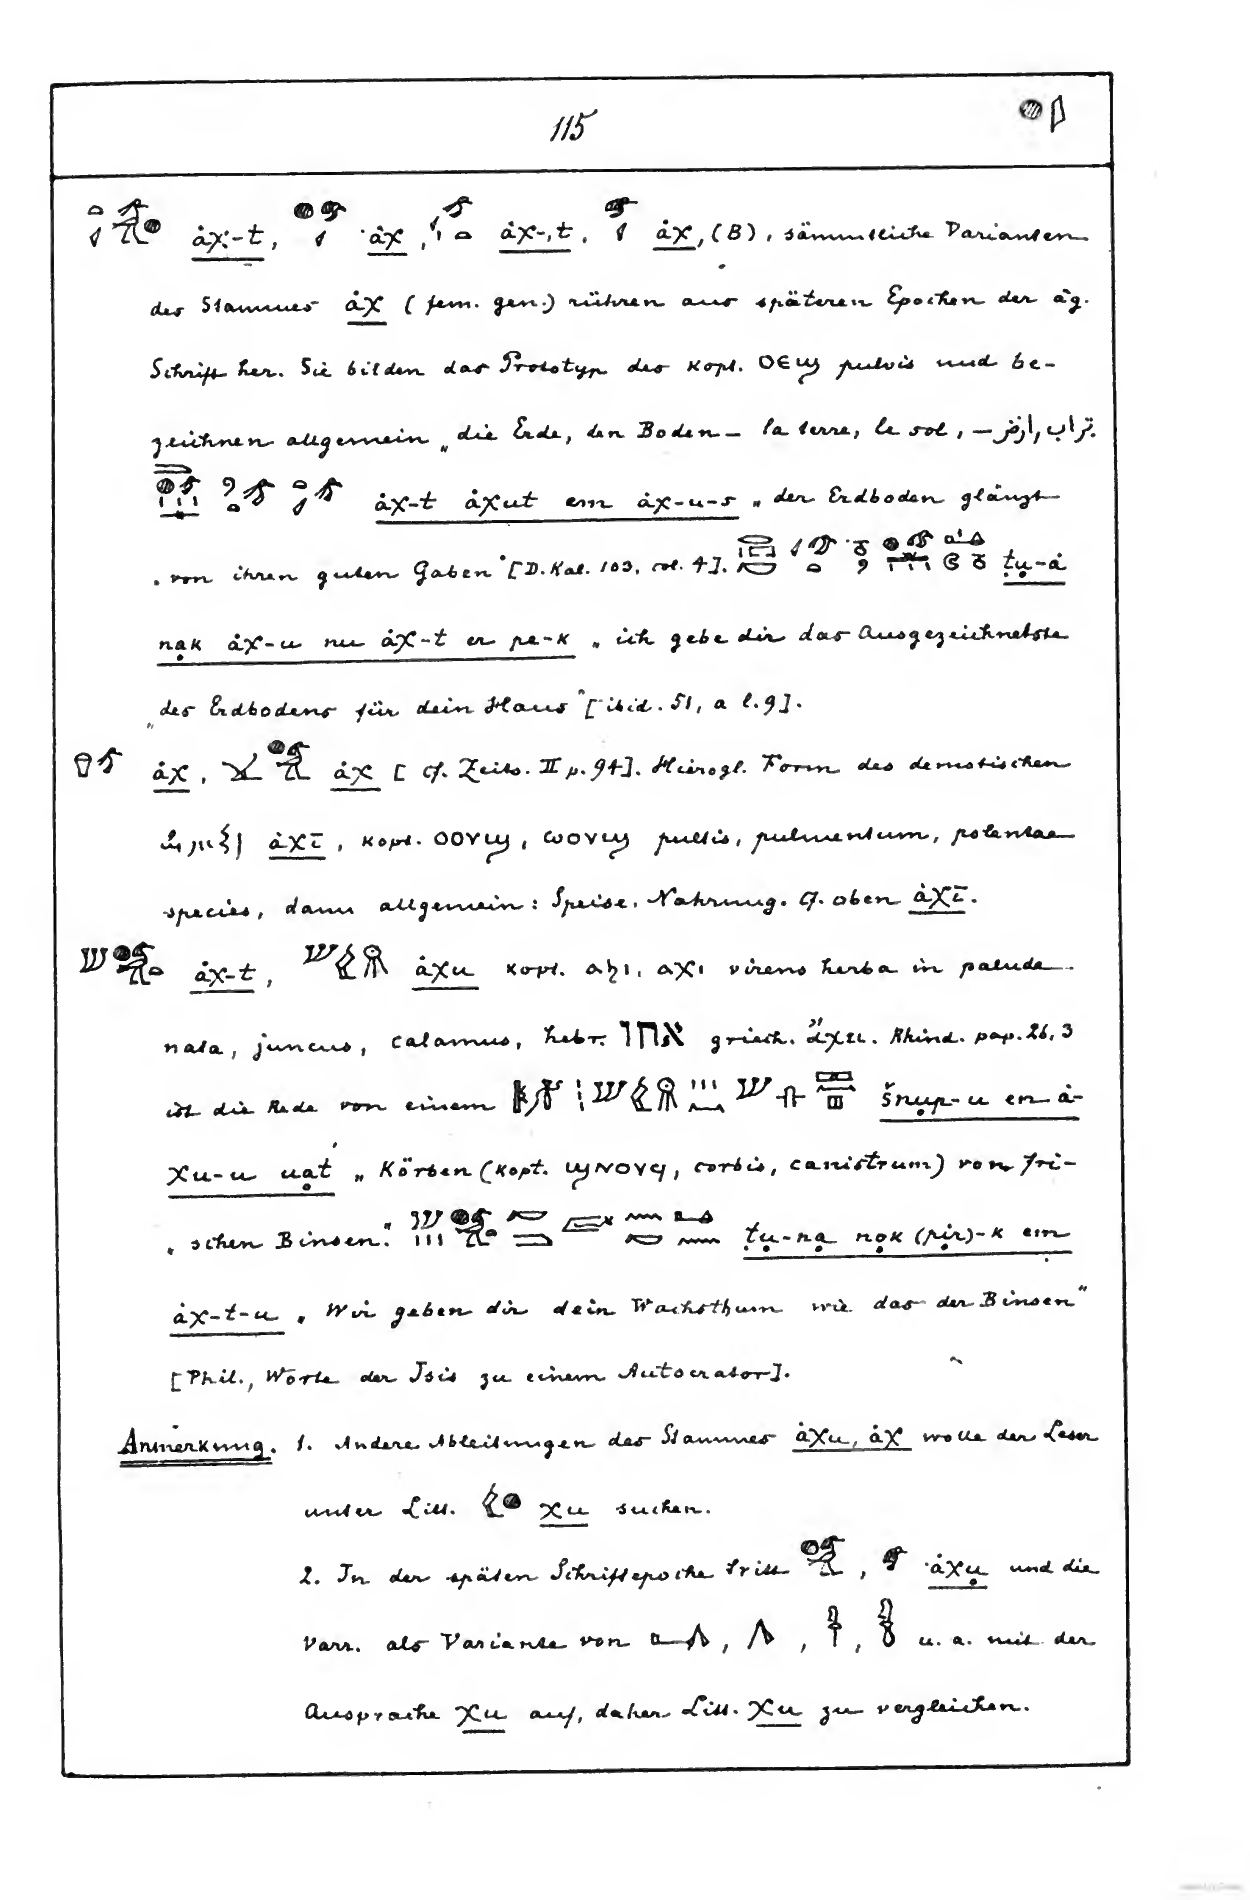 115
ȧχ-t, ȧχ, ȧχ-,t, ȧχ, (B), sämmtliche Varianten
des Stammes ȧχ (fem. gen.) rühren aus späteren Epochen der äg.
Schrift her. Sie bilden das Prototyp des kopt. ⲟⲉⲓϣ pulvis und be-
zeichnen allgemein „die Erde, den Boden — la terre, le sol, — تراب, ارض.
ȧχ-t ȧχut em ȧχ-u-s „der Erdboden glänzt
„von ihren guten Gaben" [D. Kal. 103, col. 4]. ṭu̦-ȧ
nạk ȧχ-u nu ȧχ-t er pe-k „ich gebe dir das Ausgezeichnetste
„des Erdbodens für dein Haus" [ibid. 51, a l. 9].
ȧχ, ȧχ [cf. Zeits. II p. 94]. Hierogl. Form des demotischen
ȧχī, kopt. ⲟⲟⲩϣ, ⲱⲟⲩϣ pultis, pulmentum, polentae
species, dann allgemein: Speise, Nahrung. Cf. oben ȧχī.
ȧχ-t, ȧχu kopt. ⲁϧⲓ, ⲁⲭⲓ virens herba in palude
nata, juncus, calamus, hebr. אחו griech. ἄχει. Rhind. pap. 26, 3
ist die Rede von einem šnụp-u en ȧ-
χu-u uạt „Körben (kopt. ϣⲛⲟⲩϥ, corbis, canistrum) von fri-
„schen Binsen." ṭụ-nạ nọk (pịr)-k em
ȧχ-t-u „Wir geben dir dein Wachsthum wie das der Binsen"
[Phil., Worte der Isis zu einem Autocrator].
Anmerkung. 1. Andere Ableitungen des Stammes ȧχu, ȧχ wolle der Leser
unter Litt. χu suchen.
2. In der späten Schriftepoche tritt , ȧχụ und die
Varr. als Variante von , , , u. a. mit der
Aussprache χu auf, daher Litt. χu zu vergleichen.